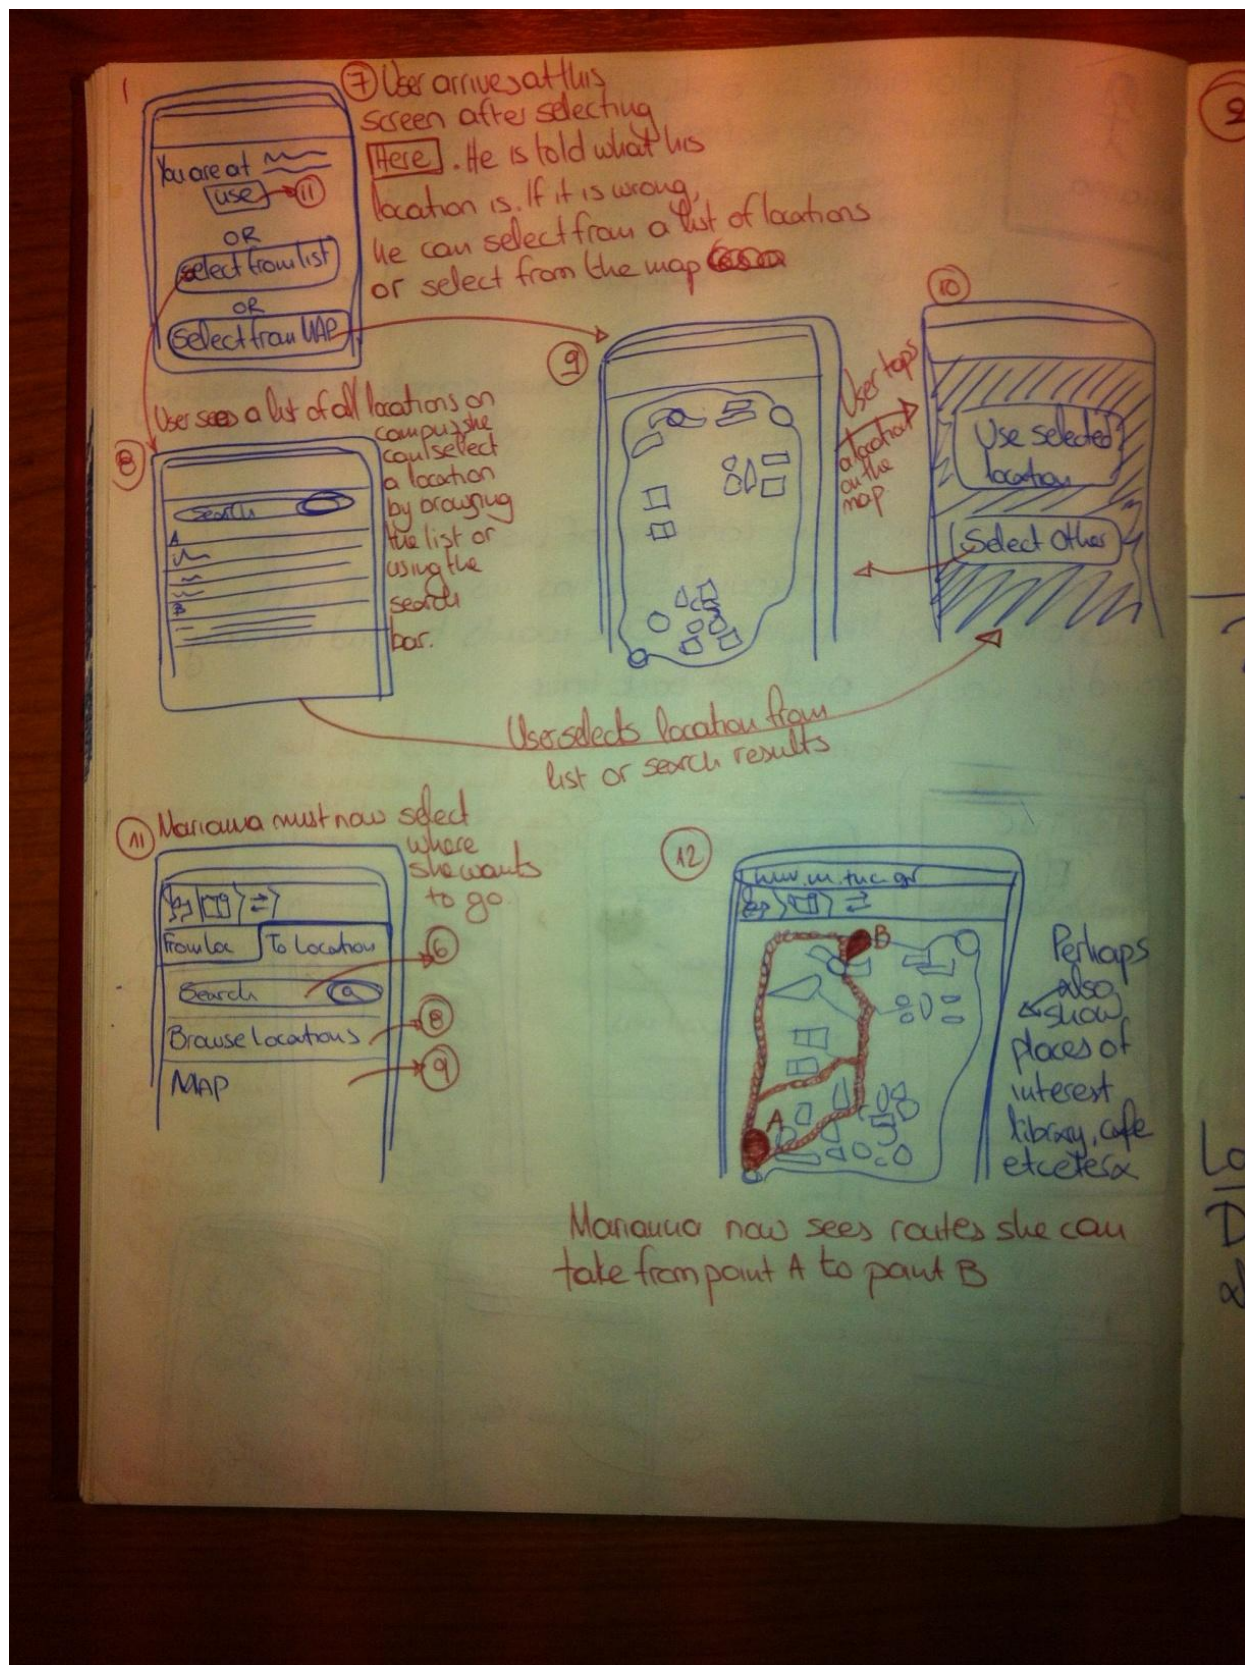 1
7 User arrives at this
screen after selecting
Here. He is told what his
location is. If it is wrong,
he can select from a list of locations
or select from the map
You are at
use 11
OR
select from list
OR
Select from MAP
User sees a list of all locations on
campus, she
can select
a location
by browsing
the list or
using the
search
bar.
8
Search
A
B
9
User taps
a location
on the
map
10
Use selected
location
Select Other
User selects location from
list or search results
11 Marianna must now select
where
she wants
to go
From Loc To Location
Search 6
Browse Locations 8
MAP 9
12
www.m.tuc.gr
B
A
Perhaps
also
show
places of
interest
library, cafe
etcetera
Marianna now sees routes she can
take from point A to point B
2
Lo
D